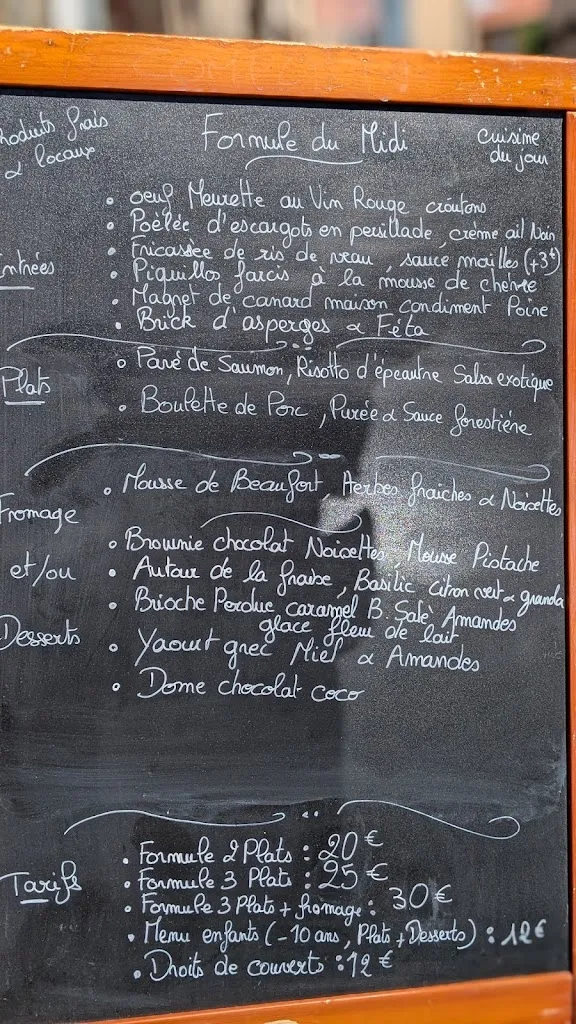 Produits frais
& locaux
Formule du Midi
cuisine
du jour
Entrées
• oeuf Meurette au Vin Rouge croutons
• Poêlée d'escargots en persillade, crème ail Noir
• Fricassée de ris de veau, sauce morilles (+3€)
• Piquillos farcis à la mousse de chèvre
• Magret de canard maison condiment Poire
• Brick d'asperges & Féta
Plats
• Pavé de Saumon, Risotto d'épeautre Salsa exotique
• Boulette de Porc, Purée & Sauce forestière
Fromage
et/ou
Desserts
• Mousse de Beaufort, Herbes fraiches & Noisettes
• Brownie chocolat Noisettes, Mousse Pistache
• Autour de la fraise, Basilic Citron vert & granola
• Brioche Perdue caramel B. Salé Amandes
glace fleur de lait
• Yaourt grec Miel & Amandes
• Dome chocolat coco
Tarifs
• Formule 2 Plats : 20€
• Formule 3 Plats : 25€
• Formule 3 Plats + fromage : 30€
• Menu enfants (-10 ans, Plats + Desserts) : 12€
• Droits de couverts : 12€